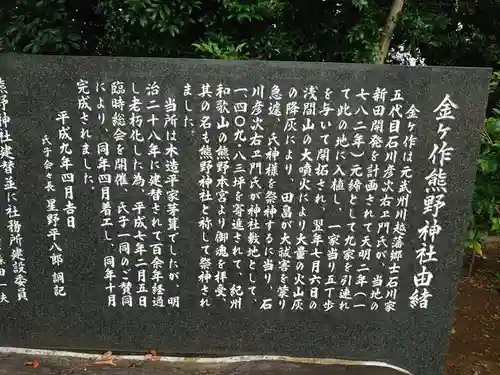 金ヶ作熊野神社由緒
金ヶ作は元武州川越藩郷士石川家
五代目石川彦次右ヱ門氏が、当地の
新田開発を計画されて天明二年(一
七八二年)元締として九家を引連れ
て此の地に入植し、一家当り五丁歩
を与いて開拓され、翌年七月六日の
浅間山の大噴火により大量の火山灰
の降灰により、田畠が大被害を蒙り
急遽、氏神様を祭神するに当り、石
川彦次右ヱ門氏が神社敷地として、
一四〇九・八三坪を寄進されて、紀州
和歌山の熊野本宮より御魂を拝受、
其の名も熊野神社と称して祭神され
ました。
当所は木造平家茅葺でしたが、明
治二十八年に建替されて百余年経過
し老朽化した為、平成七年二月五日の
臨時総会を開催、氏子一同のご賛同
により、同年四月着工し、同年十月
完成されました。
平成九年四月吉日
氏子会々長 星野平八郎 調記
熊野神社建替並に社務所建設委員